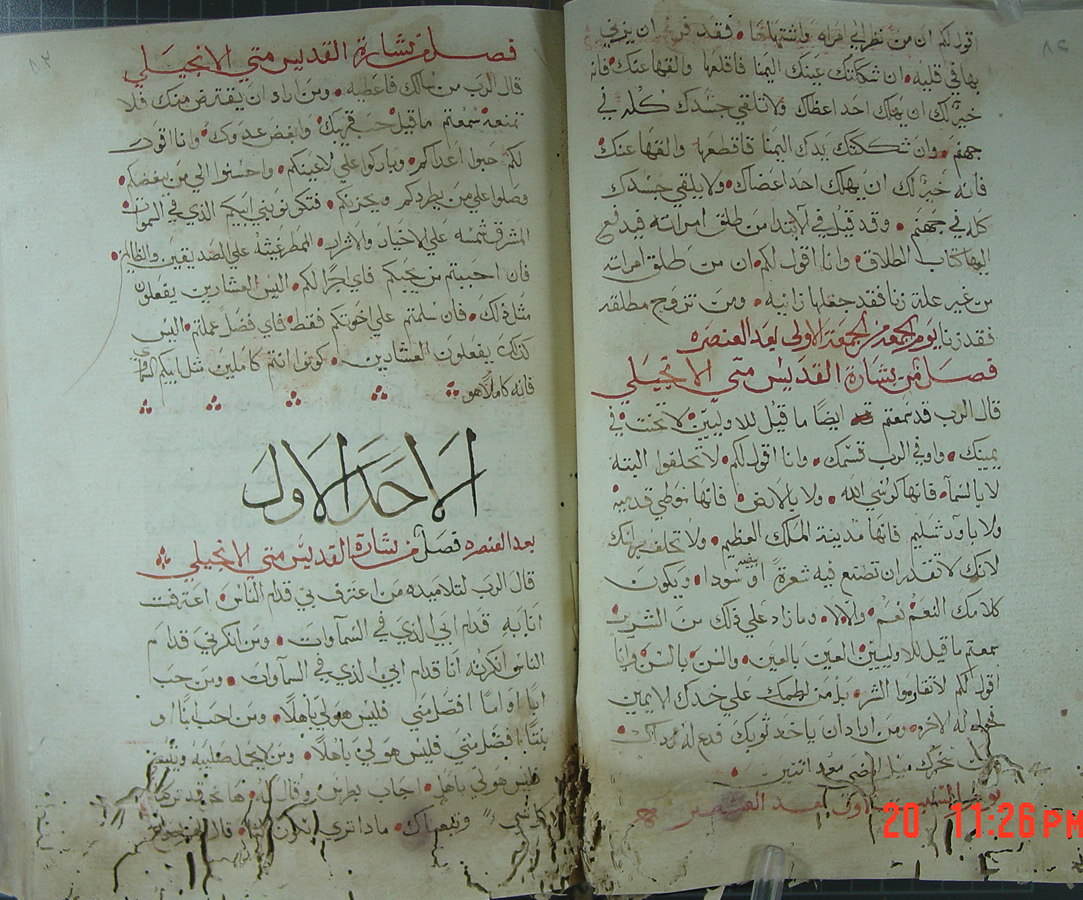 اقول لكم ان من نظر الي امراه واشتهاها فقد فرغ ان يزني
بها في قلبه ان شككتك عينك اليمنا فاقلعها والقها عنك فانه
خير لك ان يهلك احد اعضاك ولا تلقي جسدك كله في
جهنم وان شككتك يدك اليمنا فاقطعها والقها عنك
فانه خير لك ان يهلك احد اعضاك ولا يلقي جسدك
كله في جهنم وقد قيل في الابتدا من طلق امراته فيدفع
اليها كتاب الطلاق وانا اقول لكم ان من طلق امراته
من غير علة زنا فقد جعلها زانيه ومن تزوج مطلقه
فقد زنا يوم الجمعه من الجمعة الاولي بعد العنصره
فصل من بشارة القديس متي الانجيلي
قال الرب قد سمعتم ايضا ما قيل للاوليين لا تحنث في
يمينك واوفي الرب قسمك وانا اقول لكم لا تحلفوا البتة
لا بالسما فانها كرسي الله ولا بالارض فانها موطي قدميه
ولا باورشليم فانها مدينة الملك العظيم ولا تحلف براسك
لانك لا تقدر ان تصنع فيه شعرة بيضه او سودا ويكون
كلامك النعم نعم ولا لا وما زاد علي ذلك من الشرير
سمعتم ما قيل للاوليين العين بالعين والسن بالسن وانا
اقول لكم لا تقاوموا الشر بل من لطمك علي خدك الايمين
فحول له الاخر ومن اراد ان ياخد ثوبك فدع له رداك
سخرك ميل امضي معه اتنين
العنصره
فصل من بشارة القديس متي الانجيلي
قال الرب من سالك فاعطيه ومن اراد ان يقترض منك فلا
تمنعه سمعتم ما قيل حب قريبك وابغض عدوك وانا اقول
لكم حبوا اعداكم وباركوا علي لاعينكم واحسنوا الي من يبغضكم
وصلوا علي من يطردكم ويحزنكم فتكونو بني ابيكم الذي في السموات
المشرق شمسه علي الاخيار والاشرار الممطر غيثه علي الصديقين والظالمين
فان احببتم من يحبكم فاي اجرا لكم اليس العشارين يفعلون
مثل ذلك فان سلمتم علي اخوتكم فقط فاي فضل عملتم اليس
كذلك يفعلون العشارين كونوا انتم كاملين مثل ابيكم السماي
فانه كاملا هو
الاحد الاول
بعد العنصره فصل من بشارة القديس متي الانجيلي
قال الرب لتلاميده من اعترف بي قدام الناس اعترفت
انا به قدام ابي الذي في السماوات ومن انكرني قدام
الناس انكرته انا قدام ابي الذي في السماوات ومن حب
ابا او اما افضل مني فليس هو لي باهلا ومن احب ابنا او
بنتا افضل مني فليس هو لي باهلا ومن لا يحمل صليبه ويتبعني
فليس هو لي باهل اجاب بطرس وقال له ها نحن قد تركنا
كل شي وتبعناك ماذا تري يكون لنا قال لهم يسوع
20 11:26 PM